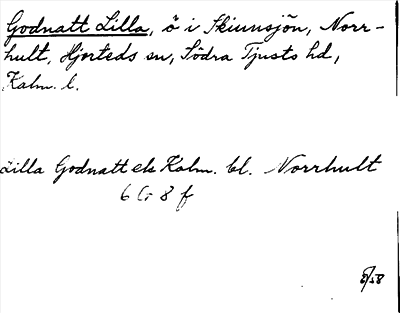 Godnatt Lilla, ö i Skiunsjön, Norr-
hult, Hjorteds sn, Södra Tjusts hd,
Kalm. l.
Lilla Godnatt ek Kalm. bl. Norrhult
6 G 8 f
8/58